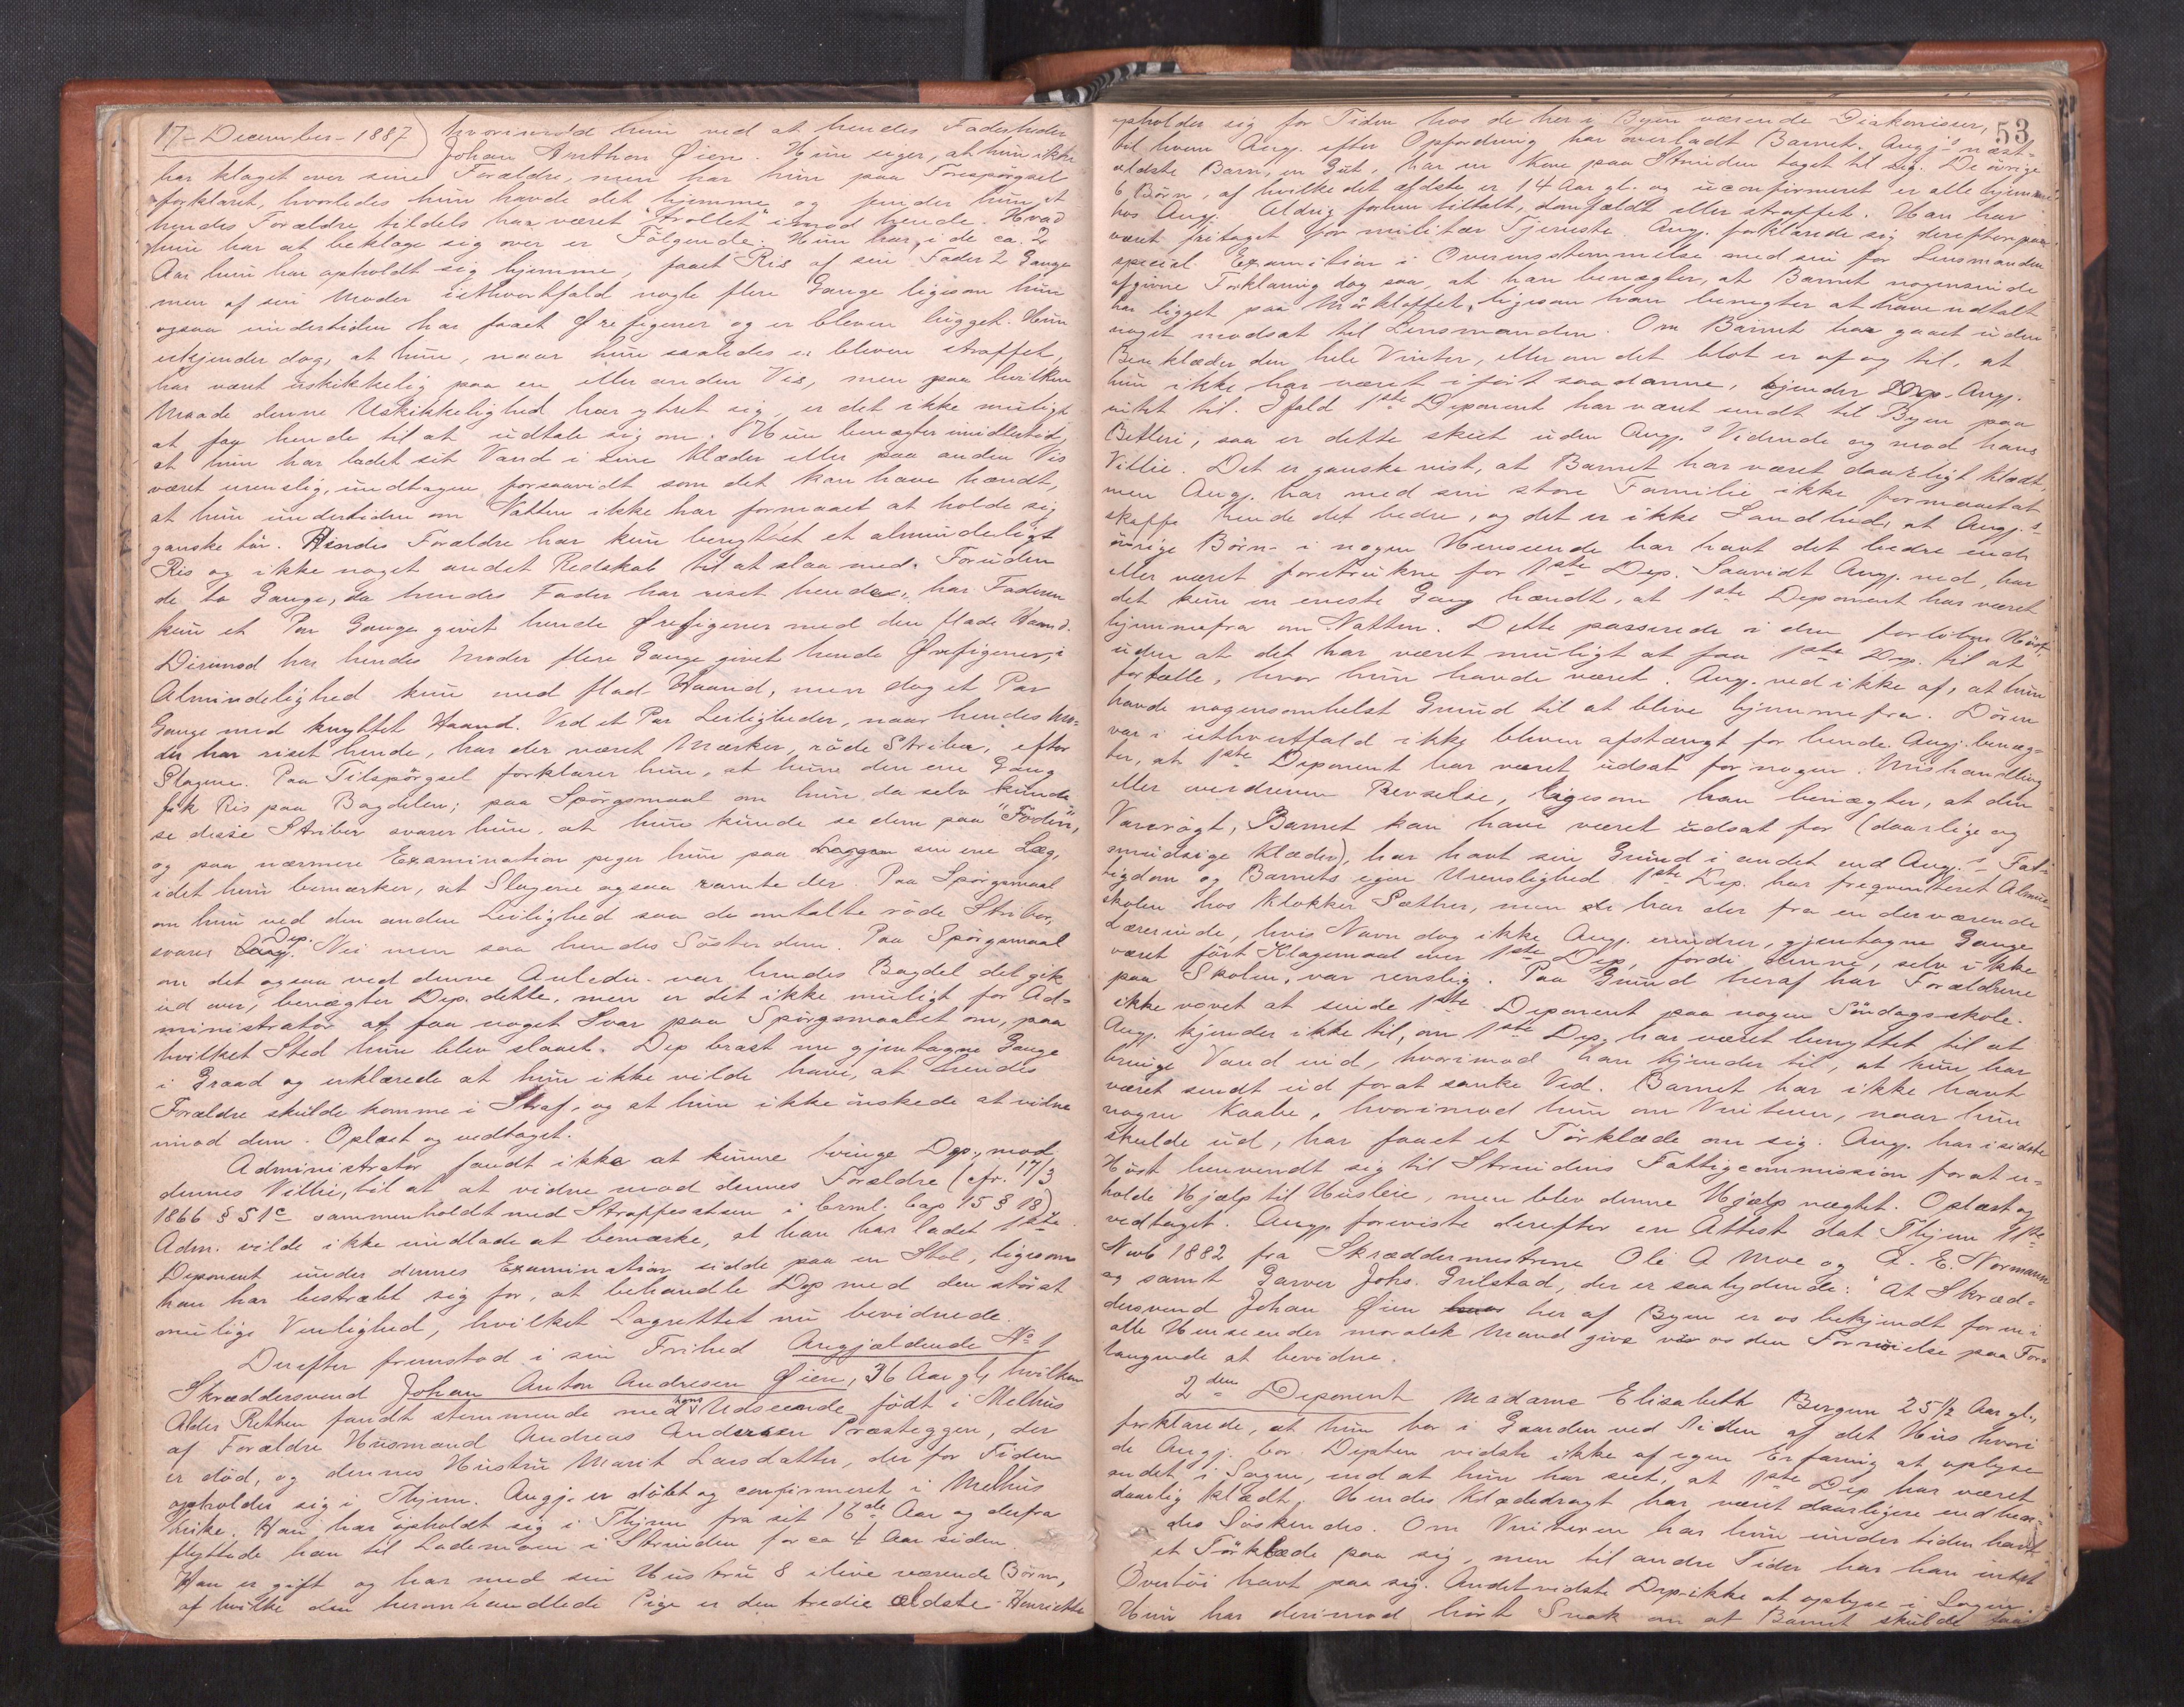 17- December- 1887) hvorimod hun ved at hendes Fader heder
Johan Anthon Øien. Hun siger, at hun ikke
har klaget over sine Forældre, men har hun paa Forespørgsel
forklaret, hvorledes hun havde det hjemme og finder hun, at
hendes Forældre tildels har været "trollet" imod hende. Hvad
hun har at beklage sig over er Følgende. Hun har, i de ca. 2
Aar hun har opholdt sig hjemme, faaet Ris af sin Fader 2 Gange
men af sin Moder i ethvertfald nogle flere Gange ligesom hun
ogsaa undertiden har faaet Ørefigener og er bleven lugget. Hun
erkjender dog, at hun, naar hun saaledes er bleven straffet,
har været uskikkelig paa en eller anden Vis, men paa hvilken
Maade denne Uskikkelighed har ytret sig, er det ikke muligt
at faa hende til at udtale sig om. Hun benægter imidlertid,
at hun har ladet sit Vand i sine Klæder eller paa anden Vis
været urenslig, undtagen forsaavidt som det kan have hændt,
at hun undertiden om Natten ikke har formaaet at holde sig
ganske tør. Hendes Forældre har kun benyttet et almindeligt
Ris og ikke noget andet Redskab til at slaa med. Foruden
de to Gange, da hendes Fader har riset hende, har Faderen
kun et Par Gange givet hende Ørefigener med den flade Haand.
Derimod har hendes Moder flere Gange givet hende Ørefigener, i
Almindelighed kun med flad Haand, men dog et Par
Gange med knyttet Haand. Ved et Par Leiligheder, naar hendes Mo-
der har riset hende, har der været Mærker, røde Striber, efter
Slagene. Paa Tilspørgsel forklarer hun, at hun den ene Gang
fik Ris paa Bagdelen; paa Spørgsmaal om hun da selv kunde
se disse Striber svarer hun, at hun kunde se dem paa "Foden",
og paa nærmere Examination peger hun paa Læggen sin ene Læg,
idet hun bemærker, at Slagene ogsaa ramte der. Paa Spørgsmaal
om hun ved den anden Leilighed saa de omtalte røde Striber,
svarer Angj. Dep. Nei men saa hendes Søster dem. Paa Spørgsmaal
om det ogsaa ved denne Anledn. var hendes Bagdel det gik
ud over, benægter Dep. dette, men er det ikke muligt for Ad-
ministrator at faa noget Svar paa Spørgsmaalet om, paa
hvilket Sted hun blev slaaet. Dep brast nu gjentagne Gange
i Graad og erklærede at hun ikke vilde have, at hendes
Forældre skulde komme i Straf, og at hun ikke ønskede at vidne
mod dem. Oplæst og vedtaget.
Administrator fandt ikke at kunne tvinge Dep., mod
dennes Villie, til at at vidne mod dennes Forældre (cfr. 17/3
1866 § 5 1c sammenholdt med Straffesatsen i Crml. Cap 15 § 18)
Adm. vilde ikke undlade at bemærke, at han har ladet 1ste
Deponent under dennes Examination sidde paa en Stol, ligesom
han har bestræbt sig for, at behandle Dep med den størst
mulige Venlighed, hvilket Lagrettet nu bevidnede.
Derefter fremstod i sin Frihed Angjældende No 1
Skræddersvend Johan Anton Andresen Øien, 36 Aar gl, hvilken
Alder Retten fandt stemmende med hans Udseende, født i Melhus
af Forældre Husmand Andreas Andersen Præsteggen, der
er død, og dennes Hustru Marit Larsdatter, der for Tiden
opholder sig i Thjem. Angj. er døbt og confirmeret i Melhus
Kirke. Han har opholdt sig i Thjem fra sit 16de Aar og derfra
flyttede han til Lademoen i Strinden for ca 4 Aar siden.
Han er gift og har med sin Hustru 8 ilive værende Børn,
af hvilke den heromhandlede Pige er den tredie ældste. Henriette
53
opholder sig for Tiden hos de her i Byen værende Diakonisser,
til hvem Angj. efter Opfordring har overladt Barnet. Angj's næst-
ældste Barn, en Gut, har en Kone paa Strinden taget til sig. De øvrige
6 Børn, af hvilke det ældste er 14 Aar gl. og uconfirmeret er alle hjemme
hos Angj. Aldrig forhen tiltalt, domfældt eller straffet. Han har
været fritaget for militær Tjeneste. Angj. forklarede sig derefter paa
special Examition i Overensstemmelse med sin for Lensmanden
afgivne Forklaring dog saa, at han benægter, at Barnet nogensinde
har ligget paa Mørkloftet, ligesom han benegter at have udtalt
noget modsat til Lensmanden. Om Barnet har gaaet uden
Benklæder den hele Vinter, eller om det blot er af og til, at
hun ikke har været iført saadanne, kjender Dep. Angj.
intet til. Ifald 1ste Deponent har været sendt til Byen paa
Betleri, saa er dette skeet uden Angj.'s Vidende og mod hans
Villie. Det er ganske vist, at Barnet har været daarligt klædt,
men Angj. har med sin store Familie ikke formaaet at
skaffe hende det bedre, og det er ikke Sandhed, at Angj.'s
øvrige Børn i nogen Henseende har havt det bedre end
eller været foretrukne for 1ste Dep. Saavidt Angj. ved, har
det kun en eneste Gang hændt, at 1ste Deponent har været
hjemmefra om Natten. Dette passerede i den forløbne Høst,
uden at det har været muligt at faa 1ste Dep. til at
fortælle, hvor hun havde været. Angj. ved ikke af, at hun
havde nogensomhelst Grund til at blive hjemmefra. Døren
var i ethvertfald ikke bleven afstængt for hende. Angj. benæg-
ter, at 1ste Deponent har været udsat for nogen Mishandling
eller overdreven Revselse, ligesom han benægter, at den
Vanrøgt, Barnet kan have været udsat for (daarlige og
smudsige Klæder), har havt sin Grund i andet end Angj.'s Fat-
tigdom og Barnets egen Urenslighed. 1ste Dep. har freqventeret Almue-
skolen hos Klokker Sæther, men de har der fra en derværende
Lærerinde, hvis Navn dog ikke Angj. erindrer, gjentagne Gange
været ført Klagemaal over 1ste Dep, fordi denne, selv ikke
paa Skolen, var renslig. Paa Grund heraf har Forældrene
ikke vovet at sende 1ste Deponent paa nogen Søndagsskole.
Angj. kjender ikke til, om 1ste Dep. har været benyttet til at
bringe Vand ind, hvorimod han kjender til, at hun har
været sendt ud forat sanke Ved. Barnet har ikke havt
nogen Kaabe, hvorimod hun om Vinteren, naar hun
skulde ud, har faaet et Tørklæde om sig. Angj. har i sidste
Høst henvendt sig til Strindens Fattigcommission forat er-
holde Hjælp til Husleie, men blev denne Hjælp nægtet. Oplæst og
vedtaget. Angj. foreviste derefter en Attest dat Thjem 11te
Novb 1882 fra Skræddermestrene Ole A Moe og A. E. Normann
og samt Garver Johs. Grilstad, der er saalydende: "At Skræd-
dersvend Johan Øien her af Byen er os bekjendt for en i
alle Henseender moralsk Mand give vi os den Fornøielse paa For-
langende at bevidne.
2den Deponent Madame Elisabeth Bergum 25 1/2 Aar gl.,
forklarede, at hun bor i Gaarden ved Siden af det Hus hvori
de Angj. bor. Depten vidste ikke af egen Erfaring at oplyse
andet i Sagen, end at hun har seet, at 1ste Dep har været
daarlig klædt. Hendes Klædedragt har været daarligere end hen-
des Søskendes. Om Vinteren har hun under tiden havt
et Tørklæde paa sig, men til andre Tider har hun intet
Overtøi havt paa sig. Andet vidste Dep. ikke at oplyse i Sagen.
Hun har derimod hørt Snak om at Barnet skulde faa